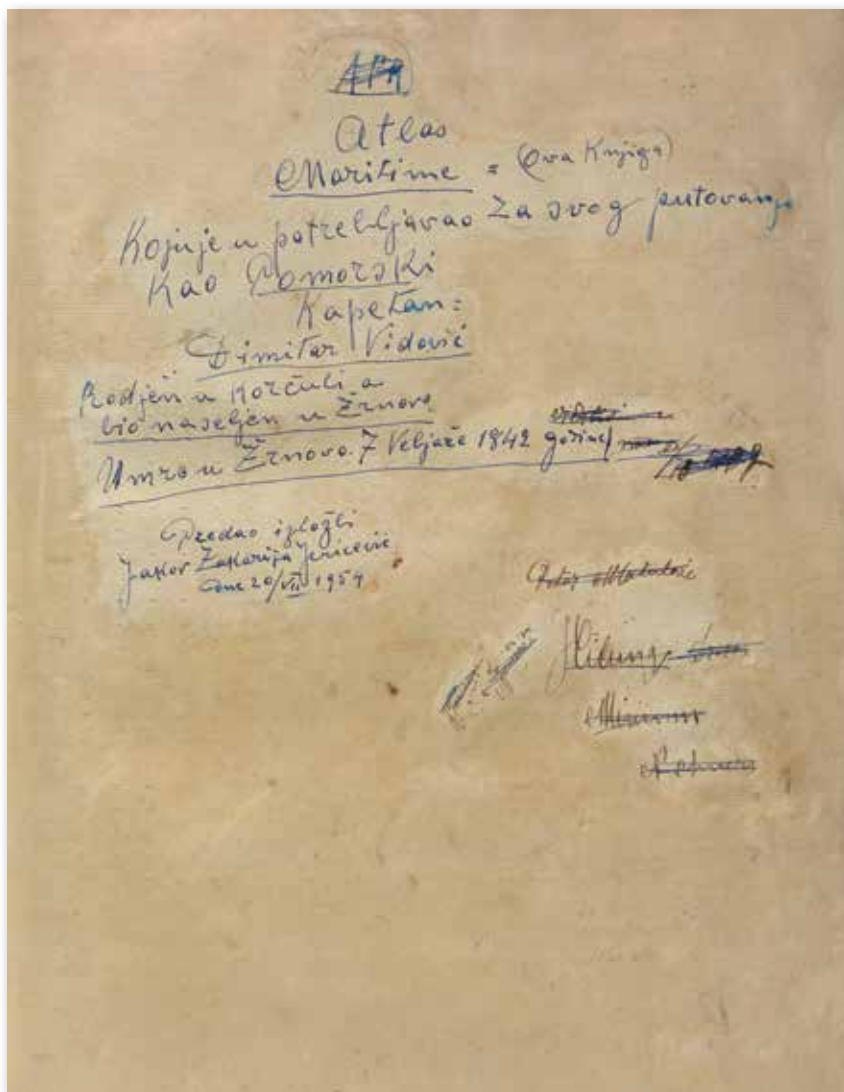 Atlas
Maritime = (Ova Knjiga)
Kojuje upotrebljavao za svog putovanja
Kao Pomorski
Kapetan =
Dimitar Vidović
Rodjen u Korčuli a
bio naseljen u Žrnovo
Umro u Žrnovo. 7 Veljače 1842 godine
Predao izložbi
Jakov Zakarija Jericević
Dne 20/VII 1954